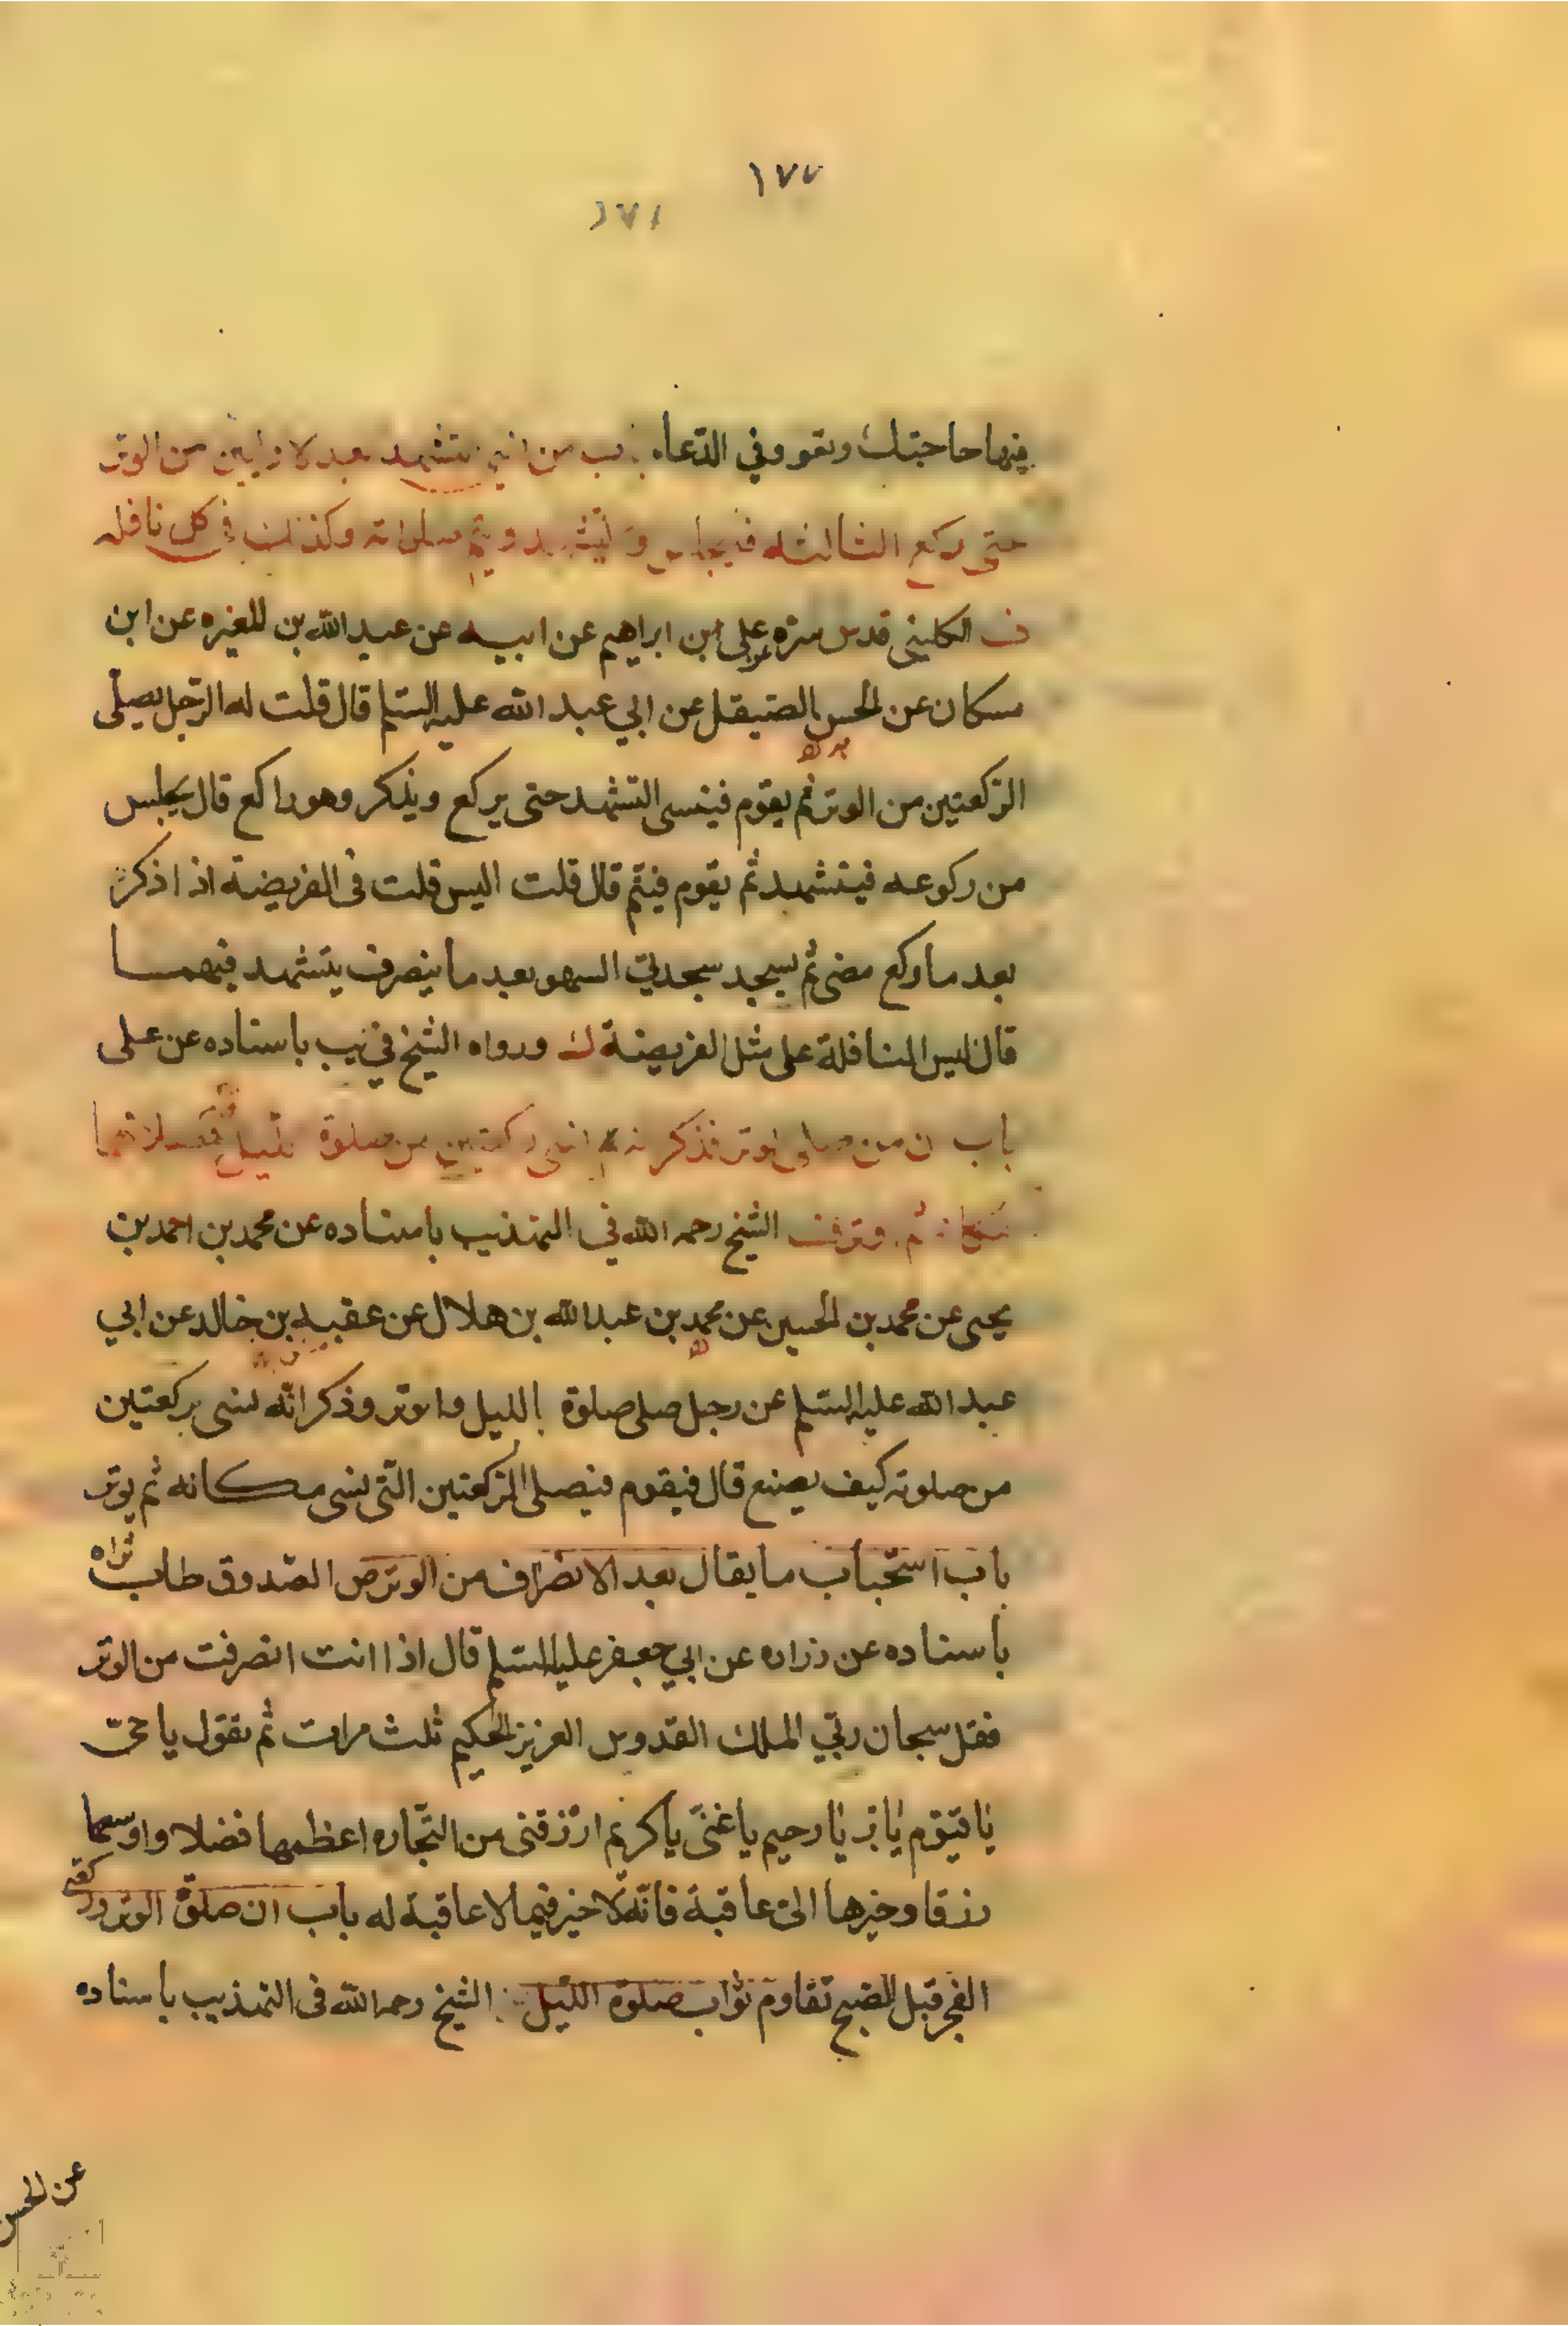 ١٧٧
١٧١
فيها حاجتك وتعود في الدّعاء باب من نسي تشهد بعد الاوليين من الوتر
حتى ركع الثالثه فيجلس ويتشهد ويتم صلواته وكذلك في كل نافله
ف الكليني قدس سره على ابن ابراهيم عن ابيه عن عبد الله بن المغيره عن ابن
مسكان عن الحسن الصيقل عن ابي عبد الله عليه السّلم قال قلت له الرّجل يصلّى
الركعتين من الوتر ثم يقوم فينسى التشهد حتى يركع ويذكر وهو راكع قال يجلس
من ركوعه فيتشهد ثم يقوم فيتم قال قلت اليس قلت فى الفريضة اذا ذكر
بعد ما ركع مضى ثم يسجد سجدتي السهو بعد ما ينصرف يتشهد فيهما
قال ليس النافلة على مثل الفريضة ورواه الشيخ في يب باسناده عن على
باب ان من صلى الوتر فذكر انه نسى ركعتين من صلوة الليل
ثم الشيخ رحمه الله في التهذيب باسناده عن محمد بن احمد بن
يحيى عن محمد بن الحسين عن محمد بن عبد الله بن هلال عن عقبه بن خالد عن ابي
عبد الله عليه السّلم عن رجل صلى صلوة الليل واوتر وذكر انّه نسى ركعتين
من صلوته كيف يصنع قال فيقوم فيصلى الركعتين الّتى نسى مكانه ثم يوتر
باب استحباب ما يقال بعد الانصراف من الوتر ص الصّدوق طاب ثراه
باسناده عن زراره عن ابي جعفر عليه السّلم قال اذا انت انصرفت من الوتر
فقل سبحان ربّي الملك القدوس العزيز الحكيم ثلث مرات ثم تقول يا حىّ
يا قيّوم يا برّ يا رحيم يا غنىّ يا كريم ارزقنى من التّجاره اعظمها فضلا واوسعها
رزقا وخيرها الىّ عاقبة فانّه لا خير فيما لا عاقبة له باب ان صلوة الوتر وركعتى
الفجر قبل الصّبح تقاوم ثواب صلوة اللّيل الشيخ رحمه الله فى التهذيب باسناده
عن الحسن